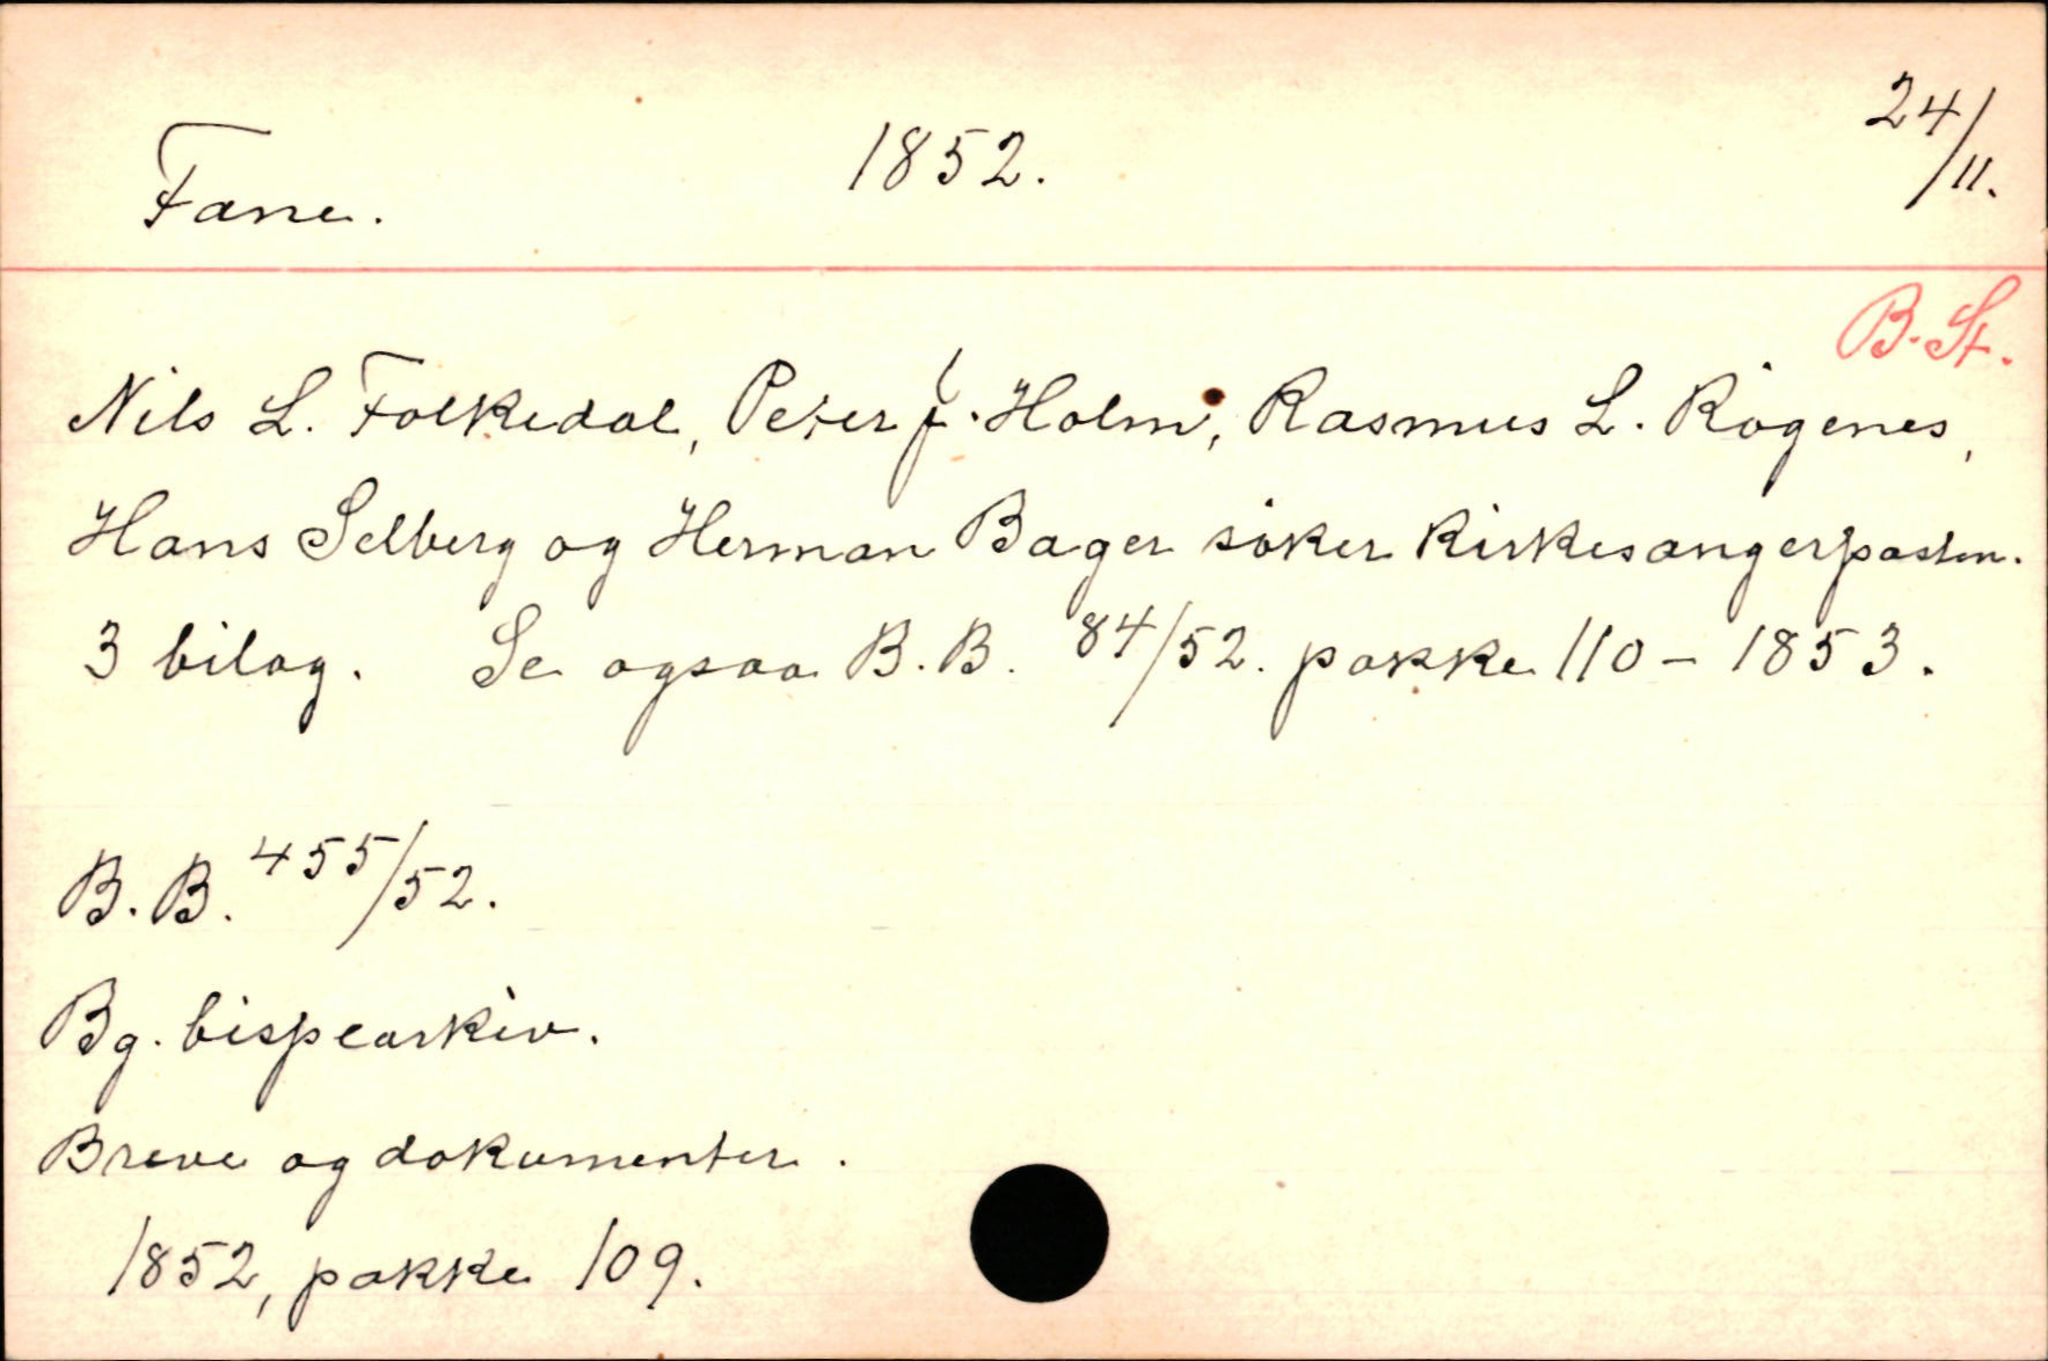 Fane. 1852. 24/11.
B. St.
Nils L. Folkedal, Peter J. Holm, Rasmus L. Rögenes,
Hans Selberg og Herman Bager söker Kirkesangerposten.
3 bilag. Se ogsaa B. B. 84/52. pakke 110 - 1853.
B. B. 455/52.
Bg. bispearkiv.
Breve og dokumenter.
1852, pakke 109.